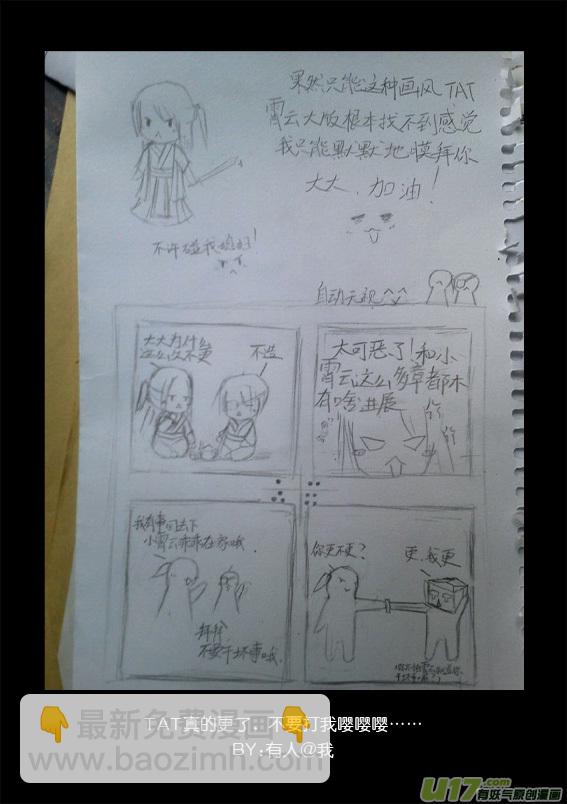 果然只能这种画风 TAT
霄云大版根本找不到感觉
我只能默默地膜拜你
大大、加油！
不许碰我媳妇！
自动无视^^
大大为什么
这么久不更
不造
太可恶了！和小
霄云这么多章都木
有啥进展
我有事回去下
小霄云乖乖在家哦．
拜拜
不要干坏事哦．
你更不更？
更、我更
TAT真的更了．不要打我嘤嘤嘤……
BY:有人@我
最新免费漫画
www.baozimh.com
U17.com
有妖气原创漫画